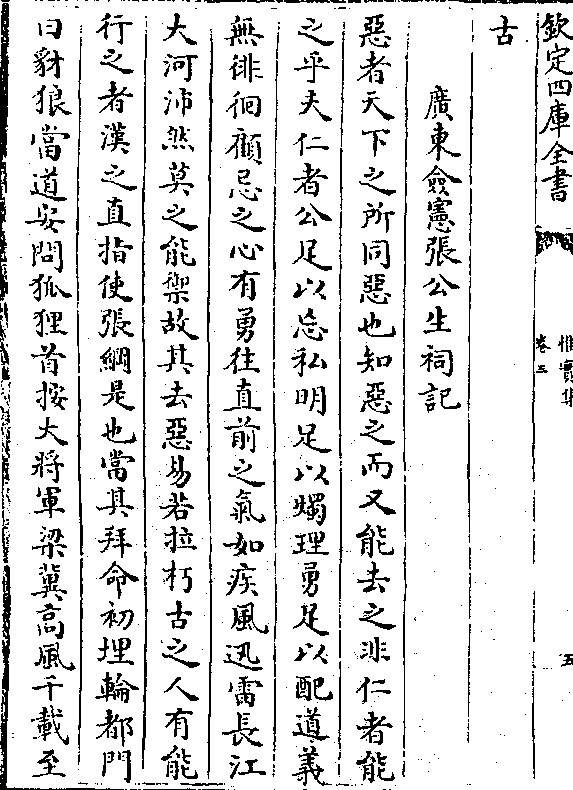 欽定四庫全書
惟實集
卷三
五
古
廣東僉憲張公生祠記
惡者天下之所同惡也知惡之而又能去之非仁者能
之乎夫仁者公足以忘私明足以燭理勇足以配道義
無徘徊顧忌之心有勇往直前之氣如疾風迅雷長江
大河沛然莫之能禦故其去惡易若拉朽古之人有能
行之者漢之直指使張綱是也當其拜命初埋輪都門
曰豺狼當道安問狐狸首按大將軍梁冀高風千載至